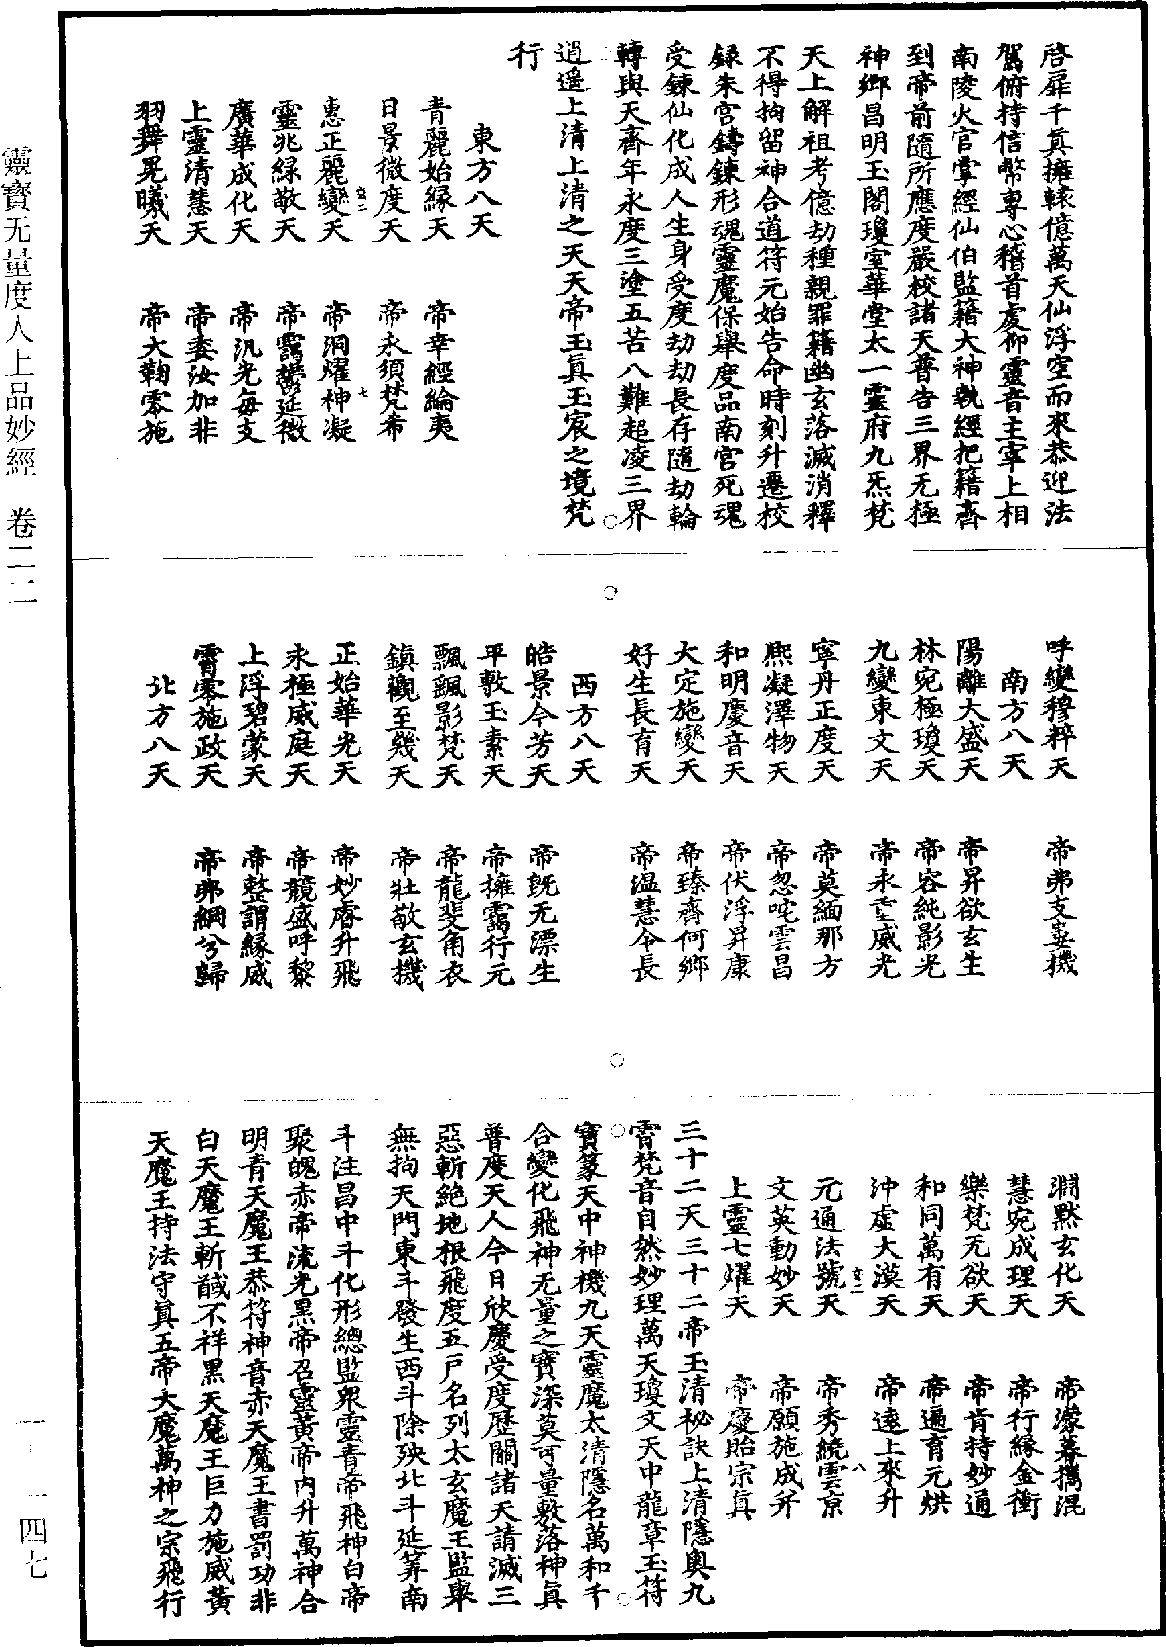 啓扉千眞擁轅億萬天仙浮空而來恭迎法
駕俯持信幣專心稽首虔仰靈音主宰上相
南陵火官掌經仙伯監籍大神執經把籍齊
到帝前隨所應度嚴校諸天普告三界无極
神鄉昌明玉閣瓊室華堂太一靈府九炁梵
天上解祖考億劫種親罪籍幽玄落滅消釋
不得拘留神合道符元始告命時刻升遷校
録朱宮鑄鍊形魂靈魔保舉度品南宮死魂
受鍊仙化成人生身受度劫劫長存隨劫輪
轉與天齊年永度三塗五苦八難超凌三界
逍遥上清上清之天天帝玉眞玉宸之境梵
行
東方八天
青麗始緣天 帝幸經綸夷
日景微度天 帝永須梵希
惠正麗變天 帝洞耀神凝
靈兆緑敬天 帝靄鬱延微
廣華成化天 帝汎光每支
上靈清慧天 帝婁汝加非
羽舞晃曦天 帝大鞠零施
呼變穆粹天 帝弗支婁機
南方八天
陽離大盛天 帝昇欲玄生
林宛極瓊天 帝容純影光
九變東文天 帝永重威光
寧丹正度天 帝莫緬那方
熙凝澤物天 帝忽咤雲昌
和明慶音天 帝伏浮昇康
大定施變天 帝臻齊何鄉
好生長育天 帝温慧令長
西方八天
皓景今芳天 帝旣无漂生
平敷玉素天 帝擁靄行元
飄颻影梵天 帝龍斐角衣
鎮觀至幾天 帝壯敬玄機
正始華光天 帝妙睿升飛
永極威庭天 帝競盛呼黎
上浮碧蒙天 帝整謂緣威
霄零施政天 帝弗綱兮歸
北方八天
淵默玄化天 帝濛暮攜混
慧宛成理天 帝行緣金衝
樂梵无欲天 帝肯持妙通
和同萬有天 帝遍育元烘
沖虛大漠天 帝遠上來升
元通法號天 帝秀繞雲京
文英動妙天 帝願施成㳽
上靈七燿天 帝慶貽宗眞
三十二天三十二帝玉清秘訣上清隱奧九
霄梵音自然妙理萬天瓊文天中龍章玉符
寶篆天中神機九天靈魔太清隱名萬和千
合變化飛神无量之寶深莫可量敷落神眞
普度天人今日欣慶受度歷關諸天請滅三
惡斬絶地根飛度五戸名列太玄魔王監舉
無拘天門東斗發生西斗除殃北斗延筭南
斗注昌中斗化形總監衆靈青帝飛神白帝
聚魄赤帝流光黒帝召靈黃帝内升萬神合
明青天魔王恭符神音赤天魔王書罰功非
白天魔王斬馘不祥黒天魔王巨力施威黃
天魔王持法守眞五帝大魔萬神之宗飛行
靈寶无量度人上品妙經 卷二二
一-一四七